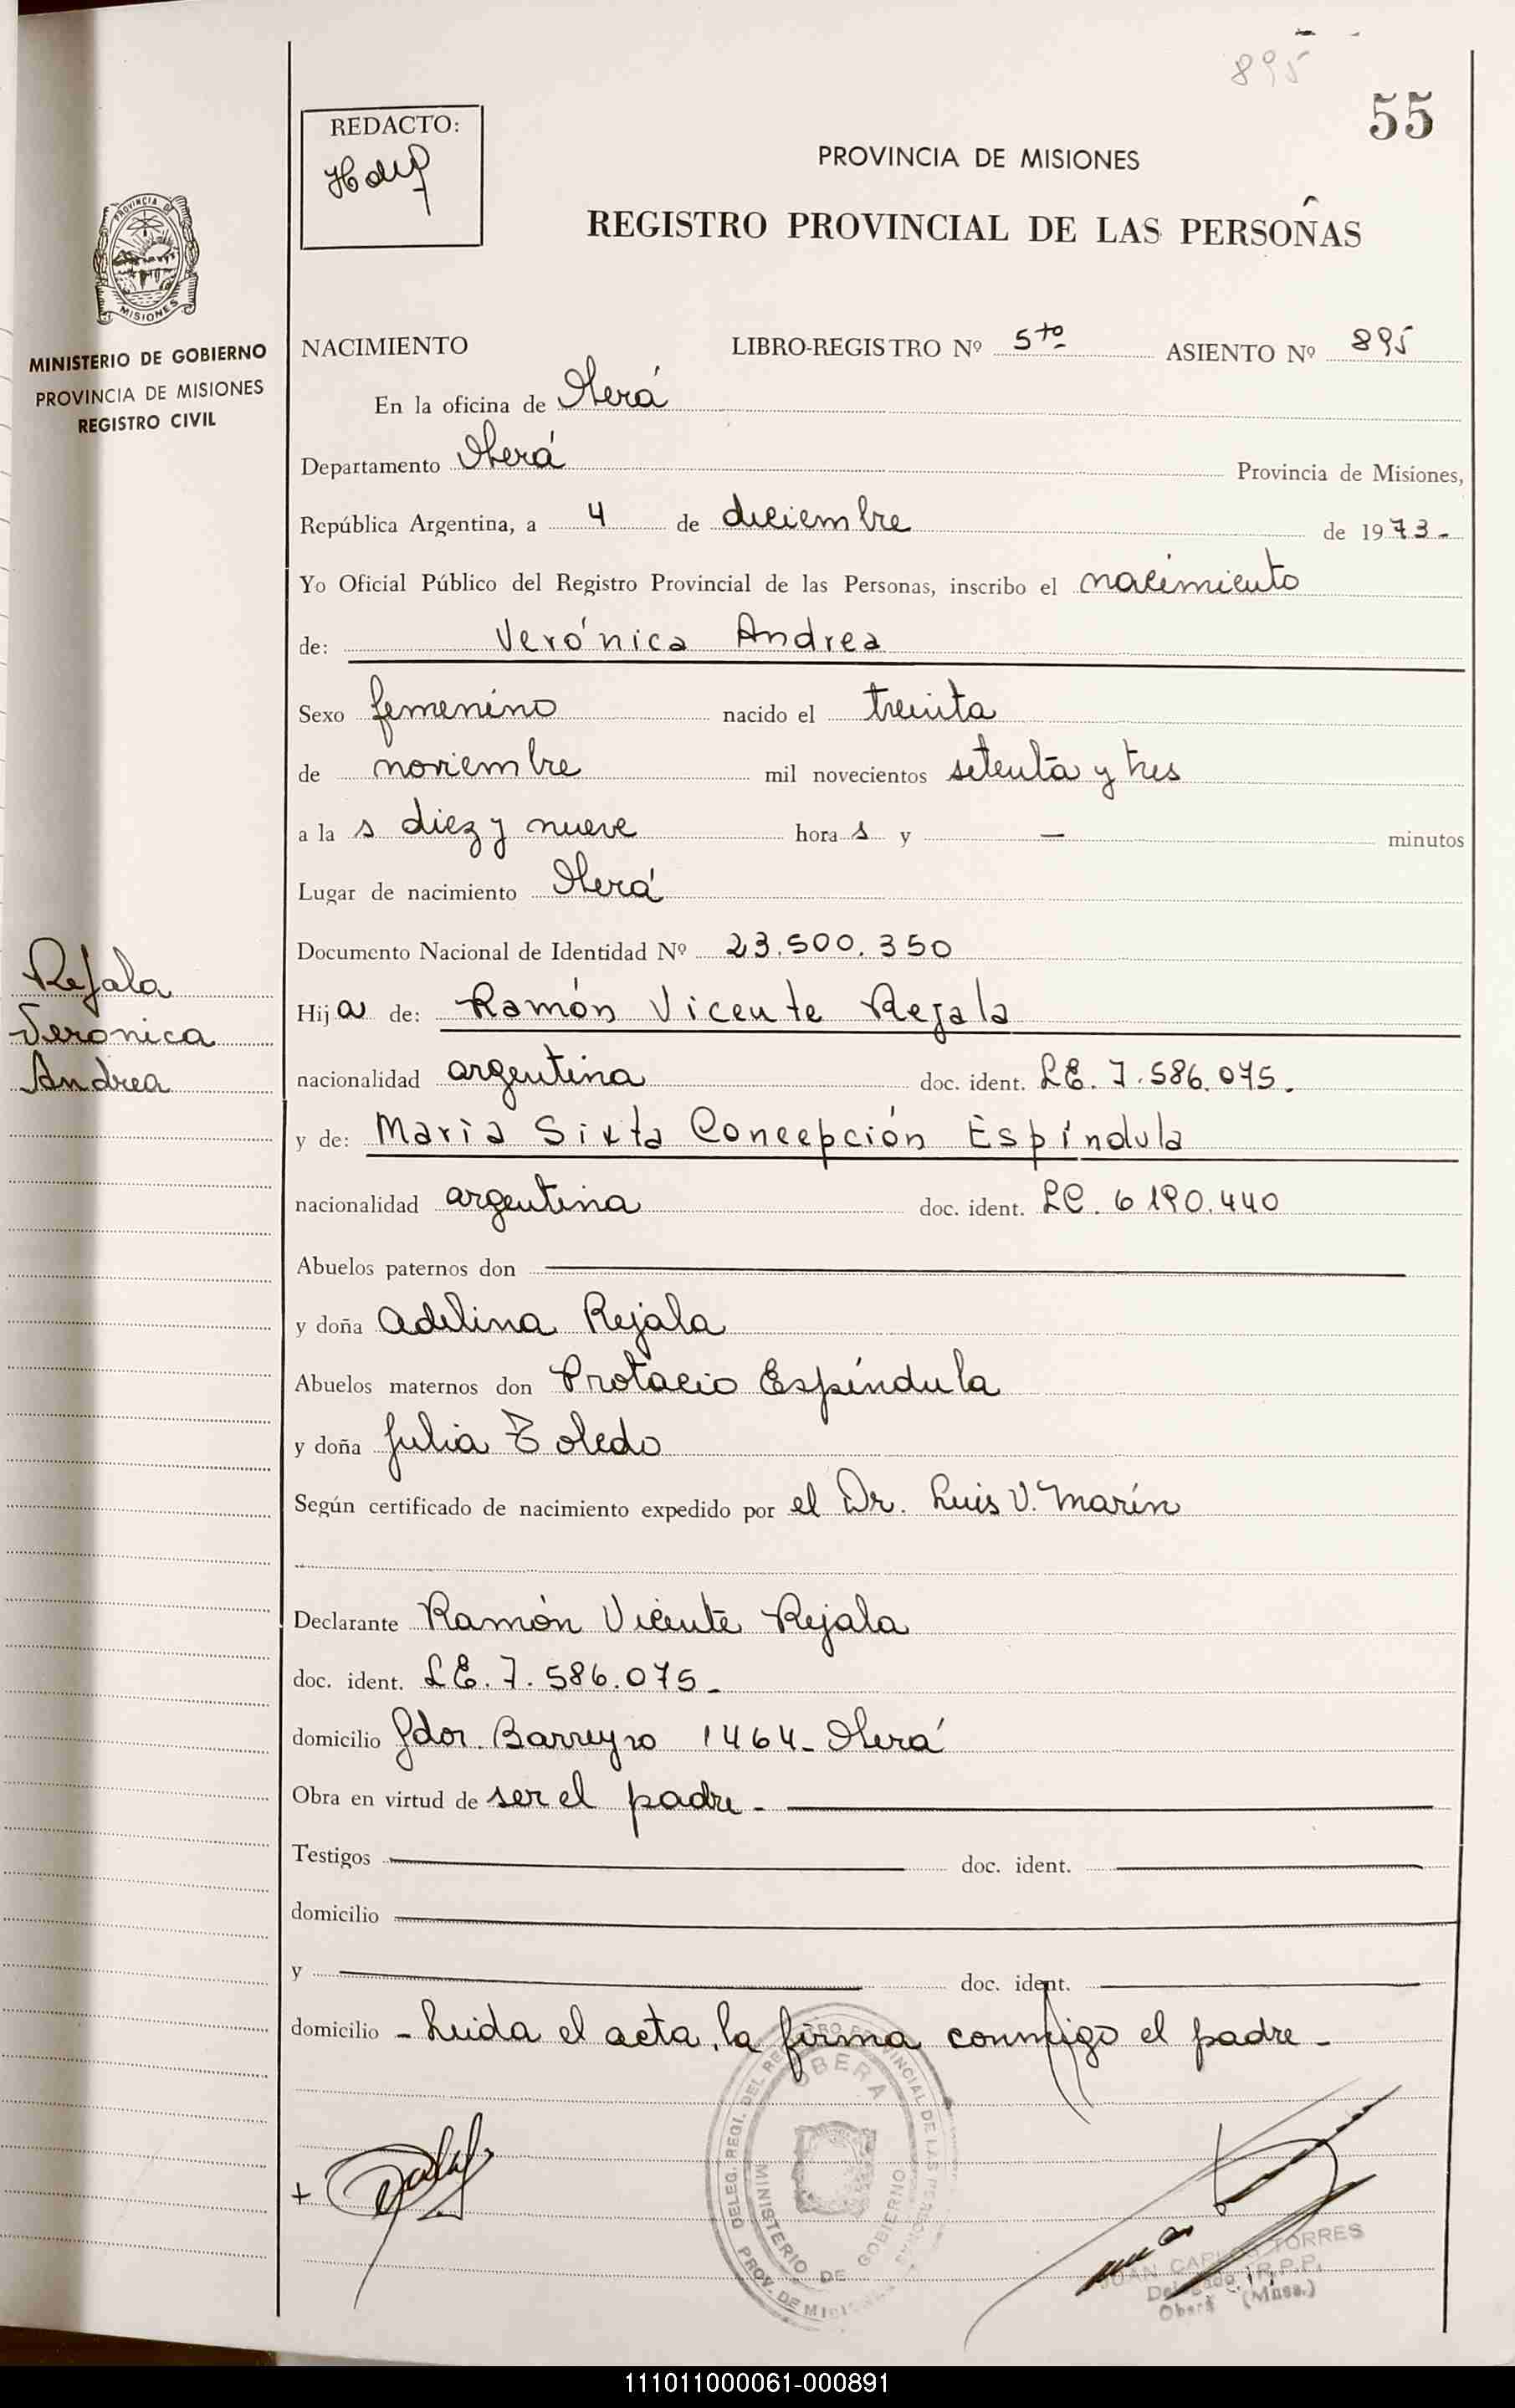 895
55
REDACTO:
PROVINCIA DE MISIONES
REGISTRO PROVINCIAL DE LAS PERSONAS
PROVINCIA DE
MISIONES
MINISTERIO DE GOBIERNO
PROVINCIA DE MISIONES
REGISTRO CIVIL
NACIMIENTO LIBRO-REGISTRO Nº 5to ASIENTO Nº 895
En la oficina de Oberá
Departamento Oberá Provincia de Misiones,
República Argentina, a 4 de diciembre de 1973-
Yo Oficial Público del Registro Provincial de las Personas, inscribo el nacimiento
de: Verónica Andrea
Sexo femenino nacido el treinta
de noviembre mil novecientos setenta y tres
a la s diez y nueve hora s y — minutos
Lugar de nacimiento Oberá
Documento Nacional de Identidad Nº 23.500.350
Rejala
Veronica
Andrea
Hij a de: Ramón Vicente Rejala
nacionalidad argentina doc. ident. LE. 7.586.075.
y de: María Sixta Concepción Espíndula
nacionalidad argentina doc. ident. LC. 6190.440
Abuelos paternos don
y doña Adelina Rejala
Abuelos maternos don Protacio Espíndula
y doña Julia Toledo
Según certificado de nacimiento expedido por el Dr. Luis V. Marín
Declarante Ramón Vicente Rejala
doc. ident. LE. 7.586.075-
domicilio Gdor. Barreyro 1464- Oberá
Obra en virtud de ser el padre -
Testigos doc. ident.
domicilio
y doc. ident.
domicilio - Leida el acta, la firma conmigo el padre -
DELEG. REGI. DEL REGISTRO PROVINCIAL DE LAS PERSONAS
OBERA
MINISTERIO DE GOBIERNO
PROV. DE MISIONES
JUAN CARLOS TORRES
Delegado R.P.P.
Oberá (Mnes.)
111011000061-000891